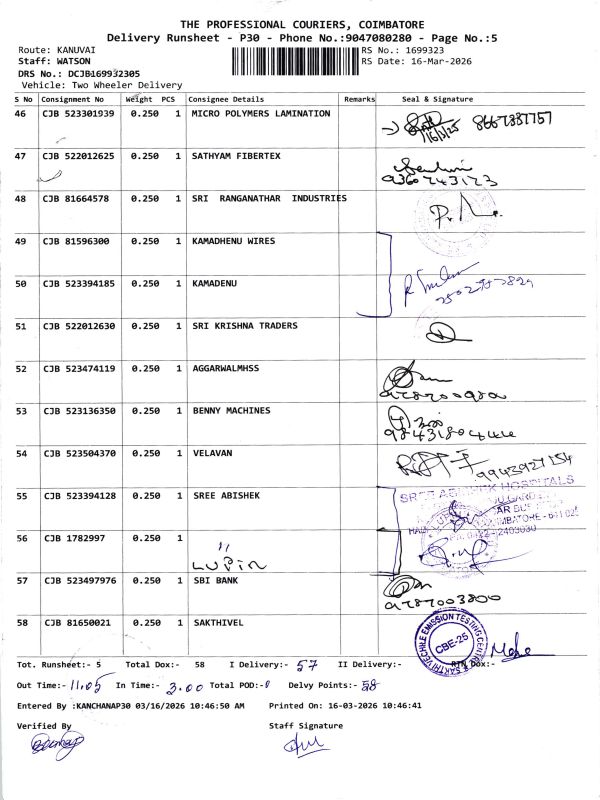 THE PROFESSIONAL COURIERS, COIMBATORE
Delivery Runsheet - P30 - Phone No.:9047080280 - Page No.:5
Route: KANUVAI RS No.: 1699323
Staff: WATSON RS Date: 16-Mar-2026
DRS No.: DCJB169932305
Vehicle: Two Wheeler Delivery
S No Consignment No Weight PCS Consignee Details Remarks Seal & Signature
46 CJB 523301939 0.250 1 MICRO POLYMERS LAMINATION 8667887757
47 CJB 522012625 0.250 1 SATHYAM FIBERTEX
9360743173
48 CJB 81664578 0.250 1 SRI RANGANATHAR INDUSTRIES
49 CJB 81596300 0.250 1 KAMADHENU WIRES
50 CJB 523394185 0.250 1 KAMADENU
51 CJB 522012630 0.250 1 SRI KRISHNA TRADERS
52 CJB 523474119 0.250 1 AGGARWALMHSS
53 CJB 523136350 0.250 1 BENNY MACHINES
54 CJB 523504370 0.250 1 VELAVAN
9943927154
55 CJB 523394128 0.250 1 SREE ABISHEK
SREE ABISHEK HOSPITALS
56 CJB 1782997 0.250 1
" LUPIN
57 CJB 523497976 0.250 1 SBI BANK
9787003800
58 CJB 81650021 0.250 1 SAKTHIVEL
SAKTHI VECHILE EMISSION TESTING CENTRE
CBE-25
Tot. Runsheet:- 5 Total Dox:- 58 I Delivery:- 57 II Delivery:- RTN Dox:-
Out Time:- 11.05 In Time:- 3.00 Total POD:- Delvy Points:- 58
Entered By :KANCHANAP30 03/16/2026 10:46:50 AM Printed On: 16-03-2026 10:46:41
Verified By Staff Signature